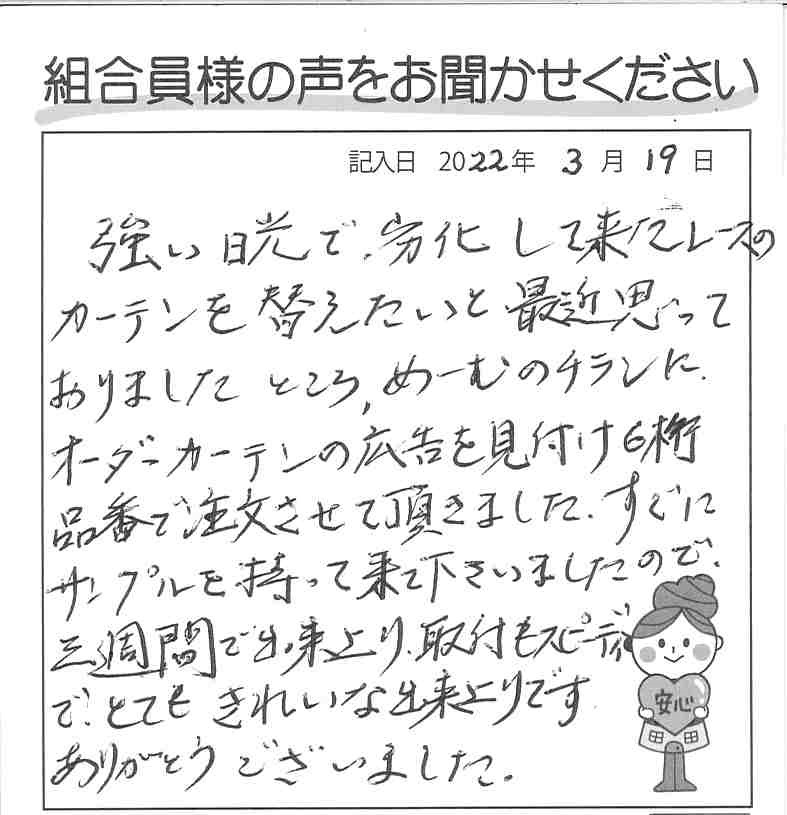 組合員様の声をお聞かせください
記入日 2022年 3月 19日
強い日光で、劣化して来たレースの
カーテンを替えたいと最近思って
おりましたところ、めーむのチラシに、
オーダーカーテンの広告を見付け6桁
品番で注文させて頂きました。すぐに
サンプルを持って来て下さいましたので、
三週間で出来上り、取付もスピーディ
で、とてもきれいな出来上りです
ありがとうございました。
安心